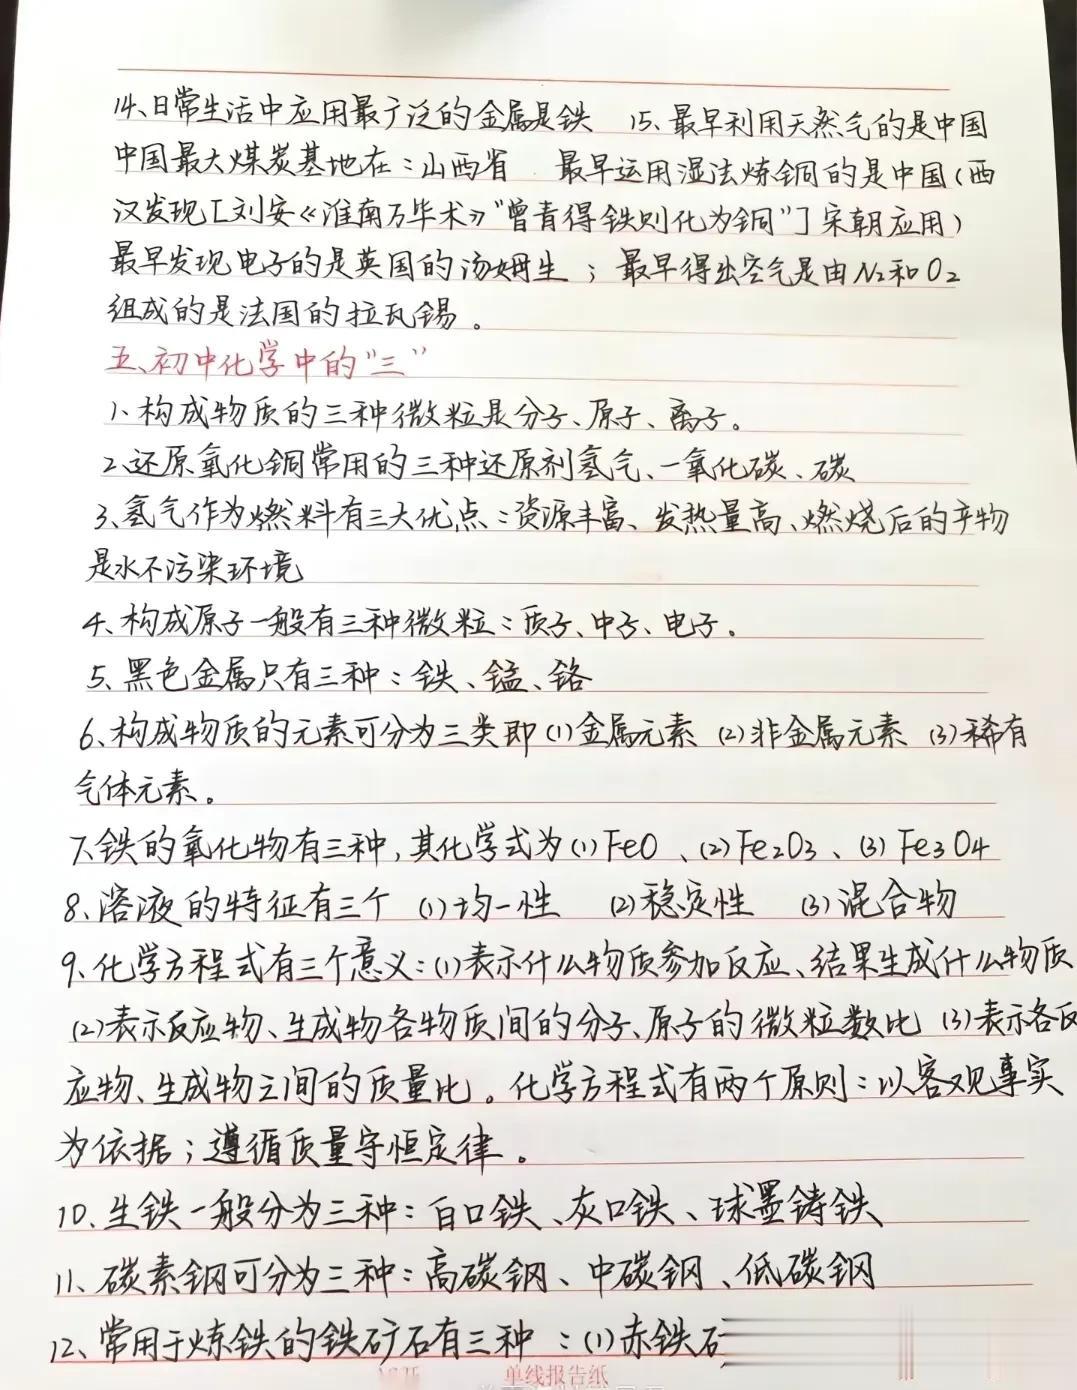 14、日常生活中应用最广泛的金属是铁 15、最早利用天然气的是中国
中国最大煤炭基地在：山西省 最早运用湿法炼铜的是中国（西
汉发现[刘安《淮南万毕术》“曾青得铁则化为铜”]宋朝应用）
最早发现电子的是英国的汤姆生；最早得出空气是由N2和O2
组成的是法国的拉瓦锡。
五、初中化学中的“三”
1、构成物质的三种微粒是分子、原子、离子。
2、还原氧化铜常用的三种还原剂氢气、一氧化碳、碳
3、氢气作为燃料有三大优点：资源丰富、发热量高、燃烧后的产物
是水不污染环境
4、构成原子一般有三种微粒：质子、中子、电子。
5、黑色金属只有三种：铁、锰、铬
6、构成物质的元素可分为三类即(1)金属元素 (2)非金属元素 (3)稀有
气体元素。
7、铁的氧化物有三种,其化学式为(1)FeO、(2)Fe2O3、(3)Fe3O4
8、溶液的特征有三个 (1)均一性 (2)稳定性 (3)混合物
9、化学方程式有三个意义：(1)表示什么物质参加反应、结果生成什么物质
(2)表示反应物、生成物各物质间的分子、原子的微粒数比 (3)表示各反
应物、生成物之间的质量比。化学方程式有两个原则：以客观事实
为依据；遵循质量守恒定律。
10、生铁一般分为三种：白口铁、灰口铁、球墨铸铁
11、碳素钢可分为三种：高碳钢、中碳钢、低碳钢
12、常用于炼铁的铁矿石有三种：(1)赤铁
单线报告纸